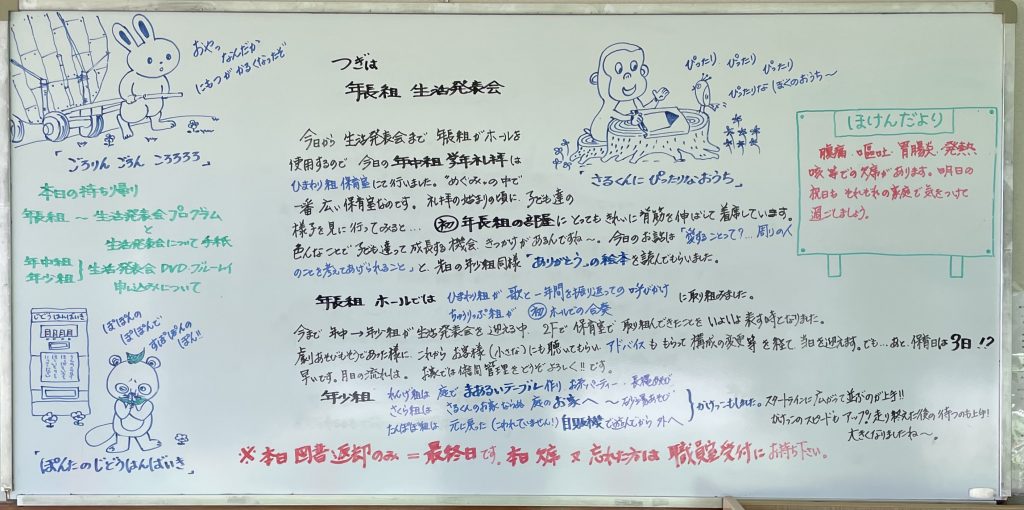 おやっ なんだか
にもつが かるくなったぞ
「ごろりん ごろん ころろろろ」
本日の持ち帰り
年長組 ～ 生活発表会プログラム
と
生活発表会について 手紙
年中組
年少組
生活発表会DVD・ブルーレイ
申し込みについて
じどうはんばいき
ぽぽんの
ぽんぽんで
すぽぽんの
ぽん!!
「ぽんたのじどうはんばいき」
つぎは
年長組 生活発表会
ぴったり ぴったり ぴったり
ぴったりな ぼくのおうち～
「さるくんに ぴったりなおうち」
ほけんだより
腹痛・嘔吐・胃腸炎・発熱
咳等での欠席があります。明日の
祝日も それぞれの家庭で気をつけて
過ごしましょう。
今日から 生活発表会まで 年長組がホールを
使用するので 今日の年中組 学年礼拝は
ひまわり組 保育室にて行いました。“めぐみ”の中で
一番 広い保育室なのです。礼拝の始まりの頃に 子ども達の
様子を見に行ってみると… 初 年長組の部屋に とっても きれいに背筋を伸ばして 着席しています。
色んなことで 子ども達って 成長する機会 きっかけが あるんですね～。今日のお話は「愛することって?…周りの人
のことを考えてあげられること」と、先日の年少組同様「ありがとう」の絵本を読んでもらいました。
年長組 ホールでは
ひまわり組が 歌と一年間を振り返っての呼びかけ
ちゅうりっぷ組が 初 ホールでの合奏
に取り組みました。
今まで 年中→年少組が生活発表会を迎える中、2Fで 保育室で 取り組んできたことを いよいよ 表す時となりました。
劇あそびもそうであった様に これから お客様(小さな)にも 聴いてもらい アドバイスも もらって 構成の変更 等を経て 当日を迎えます。でも…あと、保育日は3日!?
早いです。月日の流れは。 お家では体調管理をどうぞよろしく!!です。
年少組
れんげ組は 庭で まあるいテーブル作り お茶パーティー・長縄あそび
さくら組は さるくんのお家ならぬ 庭のお家へ ～ 砂場あそび
たんぽぽ組は 元に戻った(こわれていません!)自販機で遊んでから 外へ
かけっこもしました。スタートラインに 広がって 並びのが上手!!
かけっこのスピードも アップ!! 走り終えた後の 待つのも上手!
大きくなりましたね～。
※本日 図書返却のみ=最終日です。本日 欠席 又 忘れた方は 職員室受付に お持ち下さい。